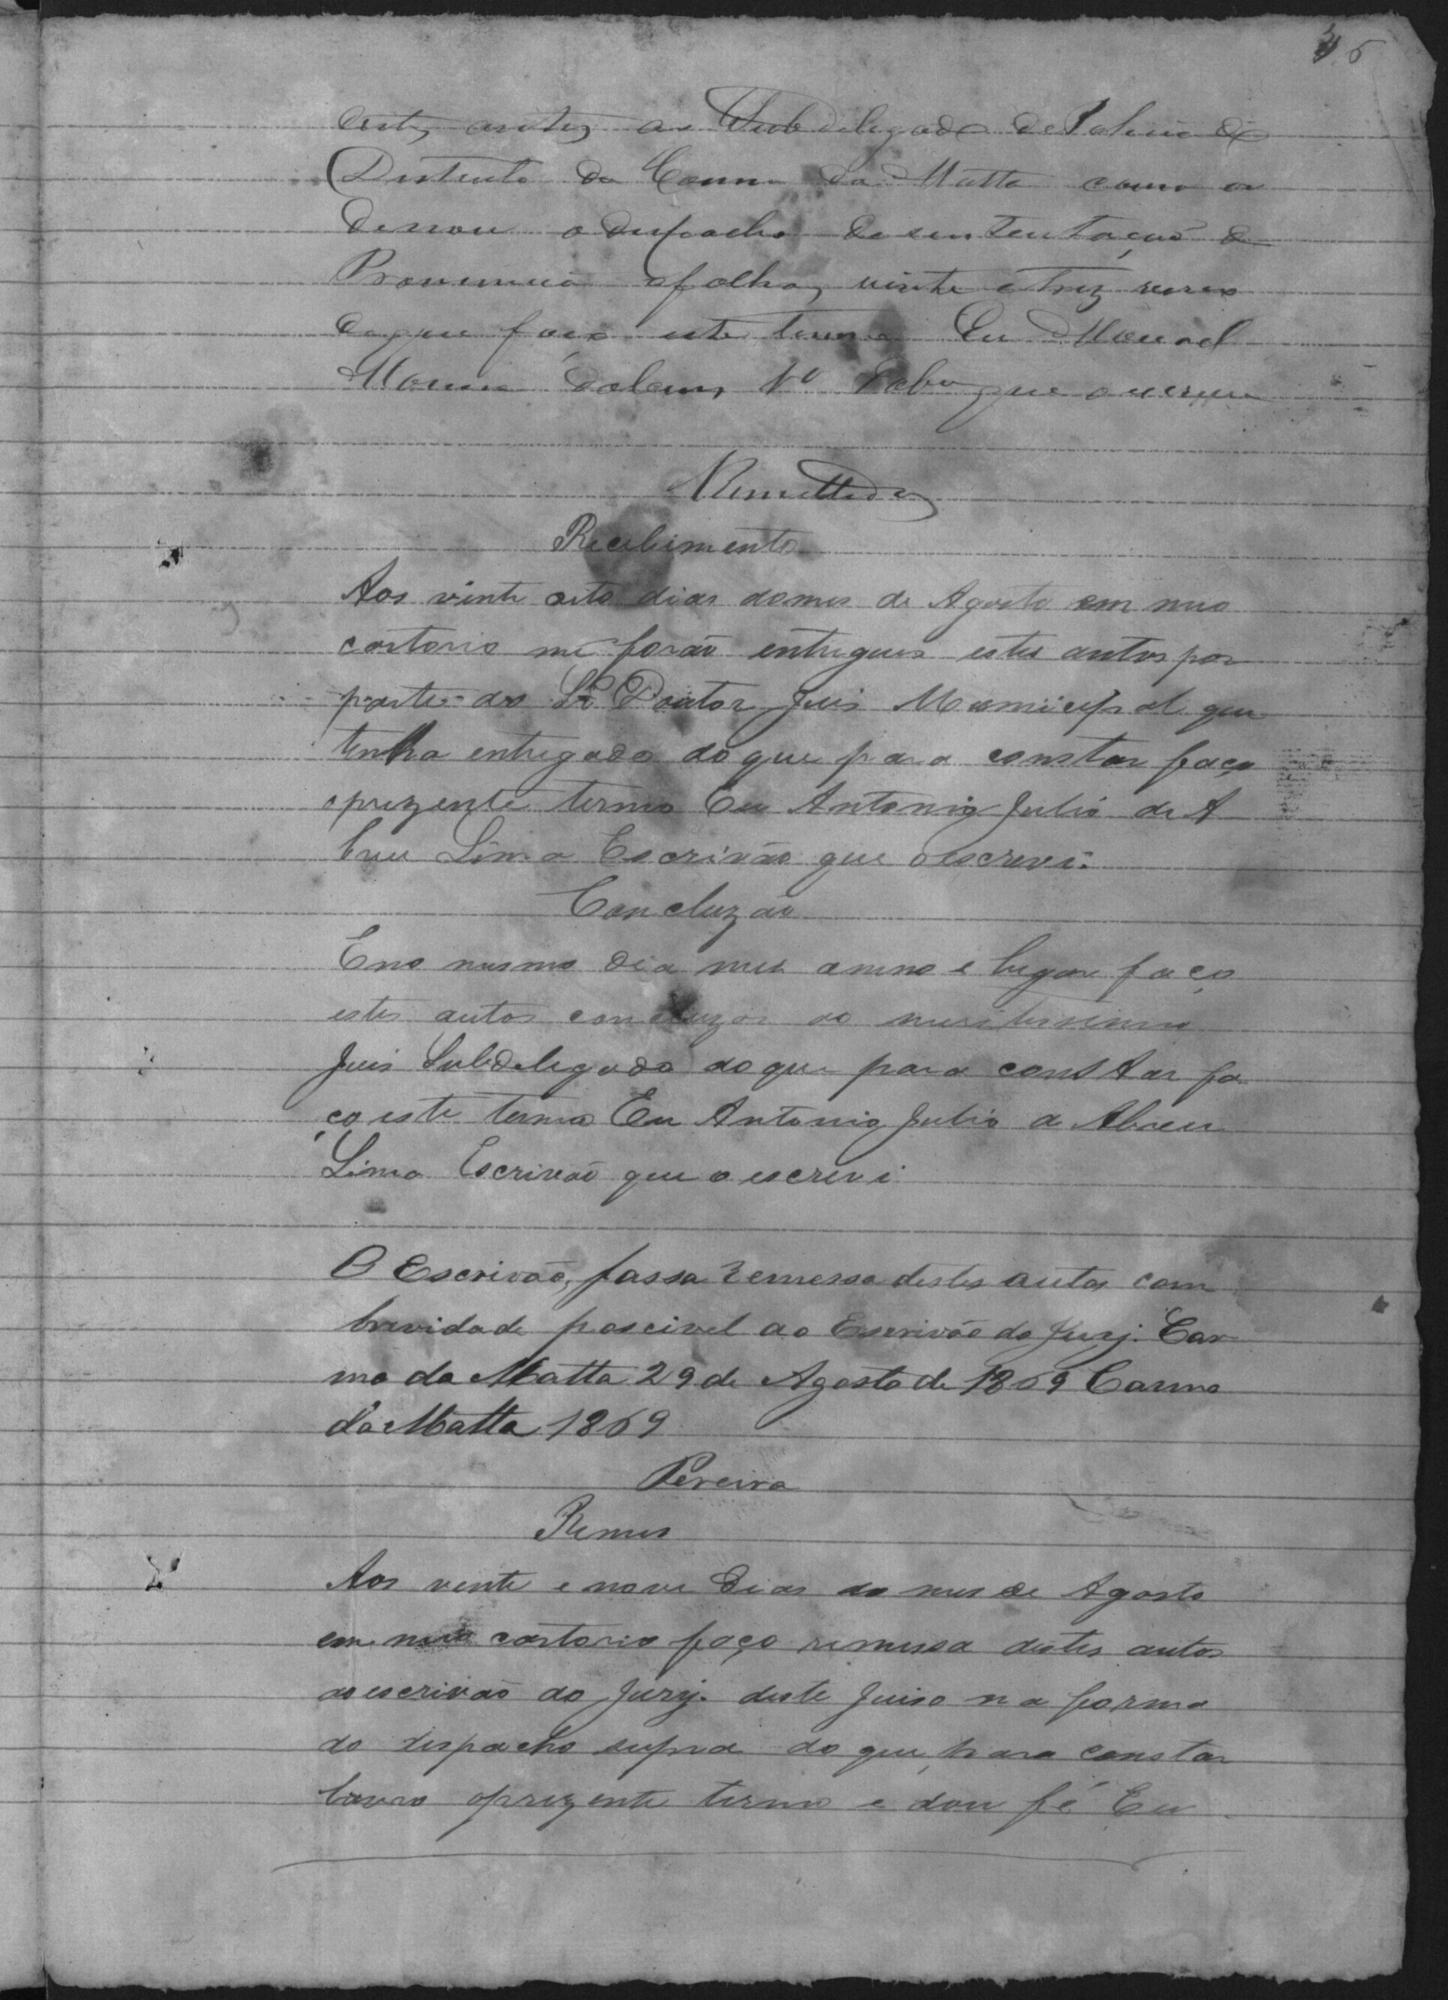 destes autos ao Subdelegado de Policia do
Districto do Carmo da Matta como or
denou o despacho de sustentação de
Pronuncia afolhas vinte e trez verso
do que faço este termo Eu Manoel
que o escrevi
Remettidos
Recebimento
Aos vinte oito dias domes de Agosto em meu
cartorio me forão entregues estes autos por
parte do Sr. Doutor Juis Municipal que
tinha entregado doque para constar faço
oprezente termo Eu Antonio Julio de A
breu Lima Escrivão que oescrevi.
Concluzão
Eno mesmo dia mes anno e lugar faço
estes autos concluzos ao meritissimo
Juis Subdelegado doque para constar fa
ço este termo Eu Antonio Julio de Abreu
Lima Escrivão que o escrevi
O Escrivão, fassa remessa destes autos com
brevidade poscivel ao Escrivão do Jury. Car
mo da Matta 29 de Agosto de 1869 Carmo
da Matta 1869
Pereira
Remes
Aos vente e nove dias do mes de Agosto
em meu cartorio faço remessa destes autos
ao escrivão do Jury. deste Juiso na forma
do despacho supra do que para constar
lavro oprezente termo e dou fé Eu